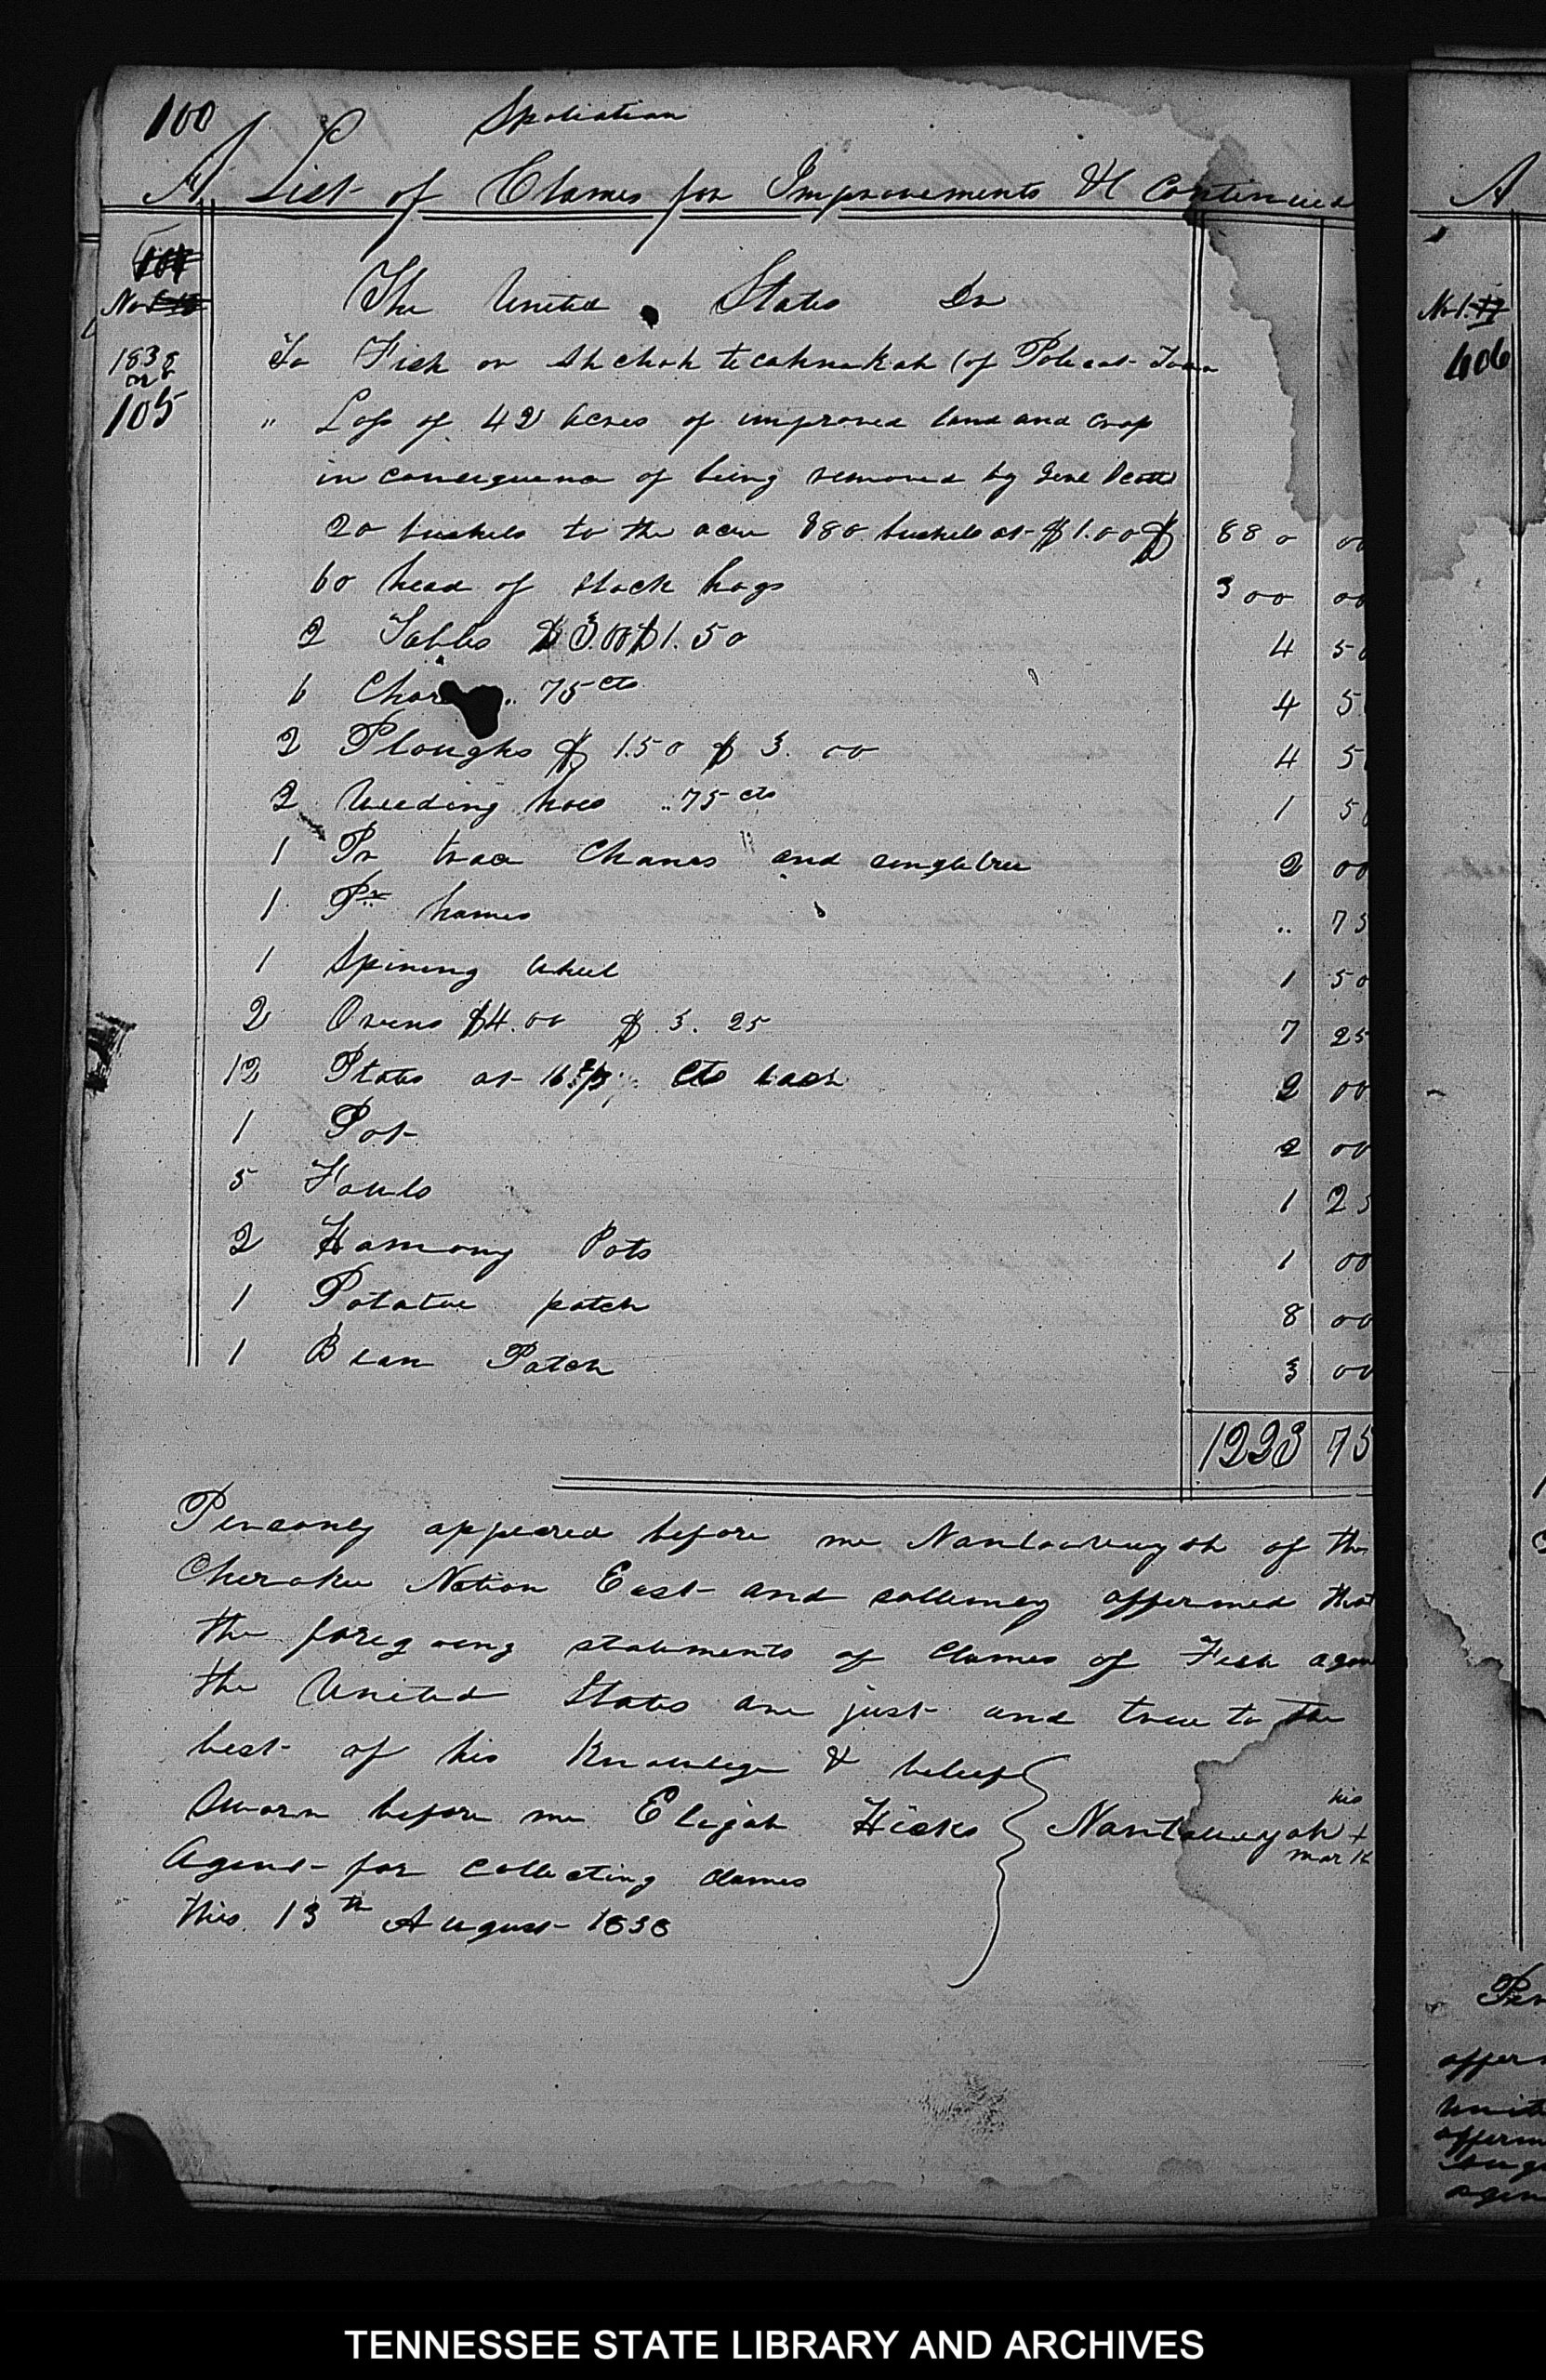 100 Spoliation
A List of Clames for Improvements &c Continued
The United States Dr
1838 To Fish or Ahchahtecahnukah (of Polecat Town
105 " Loss of 42 acres of improved land and crop
in consequence of being removed by Genl Scott
20 bushels to the acre 880 bushels at $1.00 $ 880 00
60 head of stock hogs 300 00
2 Tables $3.00 $1.50 4 50
6 75 cts 4 5
2 Ploughs $ 1.50 $ 3.00 4 5
2 Weeding hoes .. 75 cts 1 50
1 Pr trace Chanes and singletree 2 00
1 Pr hames .. 75
1 Spining wheel 1 50
2 Ovens $4.00 $ 3.25 7 25
12 Plates at 16 2/3 cts each 2 00
1 Pot 2 00
5 Fowls 1 25
2 Hammony Pots 1 00
1 Potatoe patch 8 00
1 Bean Patch 3 00
1223 75
Personey appeared before me of the
Cherokee Nation East and sollemey affermed that
the foregoing statements of Clames of Fish
the United States are just and true to the
best of his Knowledge & beleef
Sworn before me Elijah Hicks
his
Nantaweyah +
mark
Agent for collecting clames
this 13th August 1838
A
No 1.
406
TENNESSEE STATE LIBRARY AND ARCHIVES